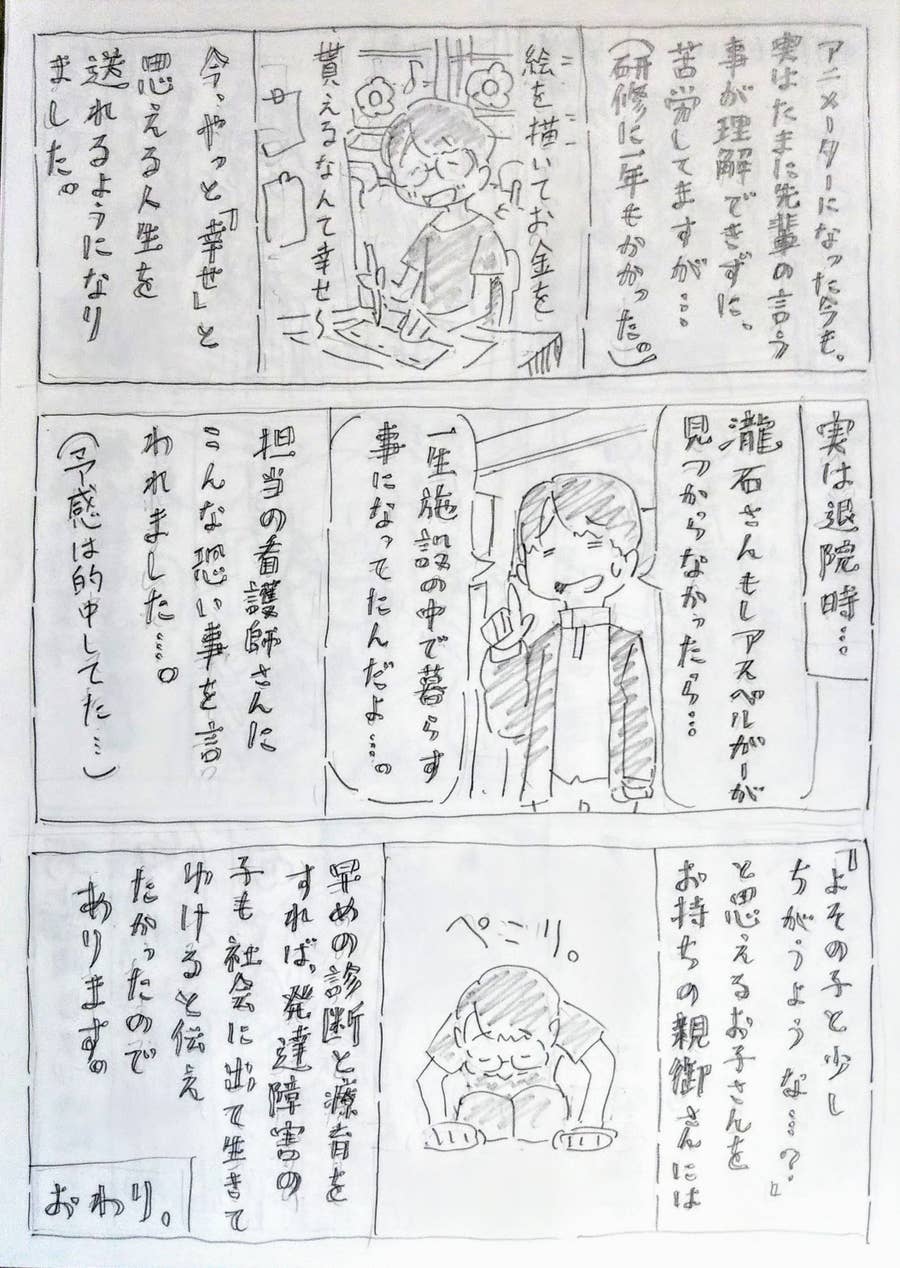 アニメーターになった今も、
実はたまに先輩の言う
事が理解できずに、
苦労してますが…
(研修に一年もかかった。)
絵を描いてお金を
貰えるなんて幸せ〜
♪
今、やっと「幸せ」と
思える人生を
送れるようになり
ました。
実は退院時…
瀧石さんもしアスペルガーが
見つからなかったら…
一生施設の中で暮らす
事になってたんだよ…。
担当の看護師さんに
こんな恐い事を言
われました…。
(予感は的中してた…)
『よその子と少し
ちがうような…？』
と思えるお子さんを
お持ちの親御さんには
ぺこり。
早めの診断と療育を
すれば、発達障害の
子も社会に出て生きて
ゆけると伝え
たかったので
あります。
おわり。